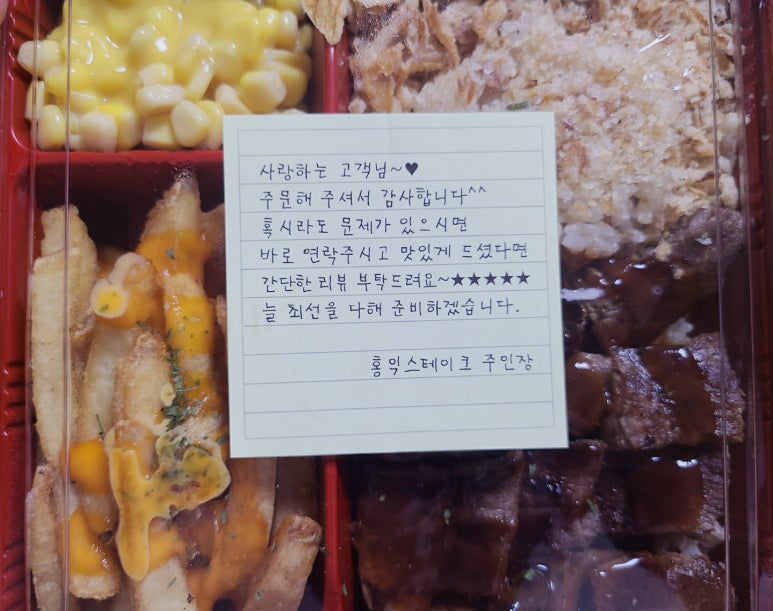 사랑하는 고객님~♥
주문해 주셔서 감사합니다^^
혹시라도 문제가 있으시면
바로 연락주시고 맛있게 드셨다면
간단한 리뷰 부탁드려요~★★★★★
늘 최선을 다해 준비하겠습니다.
홍익스테이크 주인장